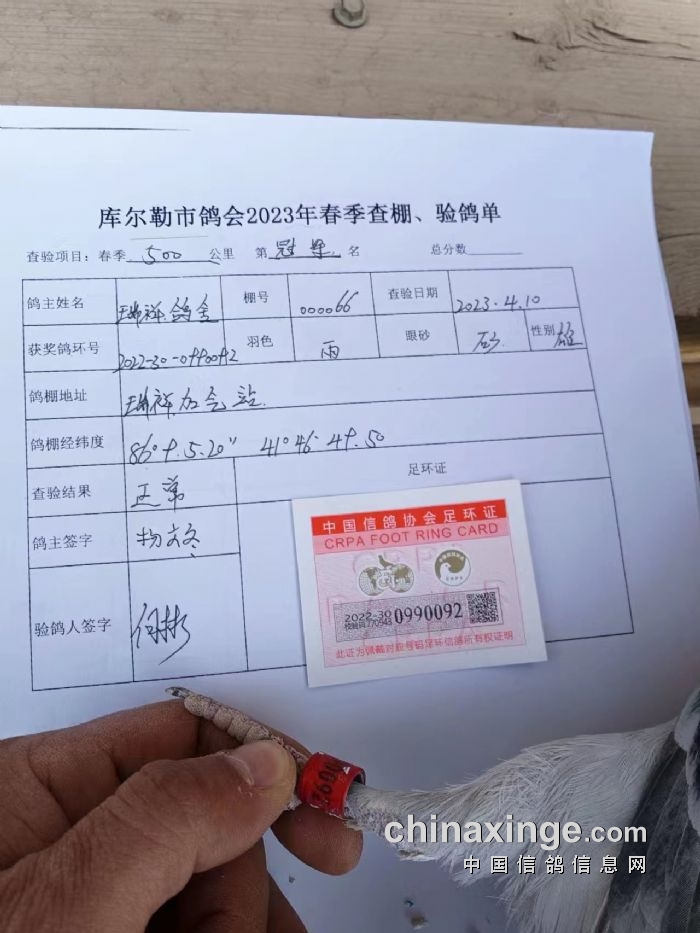 库尔勒市鸽会2023年春季查棚、验鸽单
查验项目：春季 500 公里 第 冠军 名 总分数
鸽主姓名 瑞祥鸽舍 棚号 000066 查验日期 2023.4.10
获奖鸽环号 2022-30-0990092 羽色 雨 眼砂 砂 性别 雄
鸽棚地址 瑞祥加气站
鸽棚经纬度 41°46
查验结果 正常 足环证
鸽主签字
验鸽人签字 何彬
中国信鸽协会足环证
CRPA FOOT RING CARD
2022-30 0990092
校验码770943
此证为佩戴对应号码足环信鸽所有权证明
chinaxinge.com
中国信鸽信息网